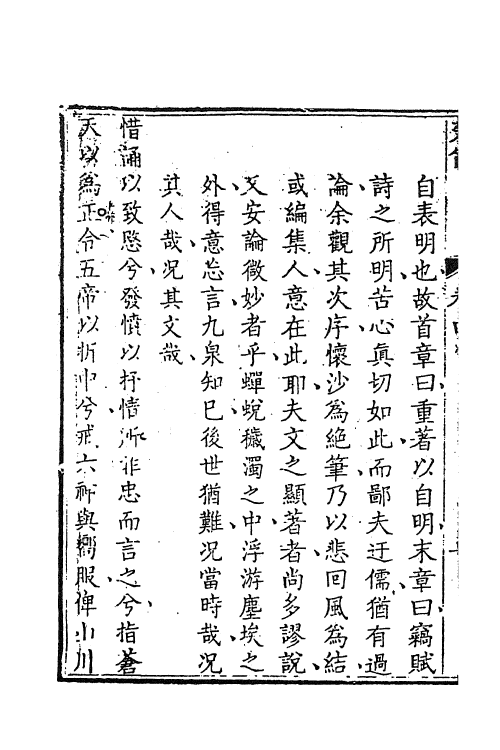 自表明也故首章曰重著以自明末章曰竊賦
詩之所明苦心真切如此而鄙夫迂儒猶有過
論余觀其次序懷沙為絶筆乃以悲回風為結
或編集人意在此耶夫文之顯著者尚多謬說
又安論微妙者乎蟬蛻穢濁之中浮游塵埃之
外得意忘言九泉知已後世猶難况當時哉况
其人哉况其文哉
惜誦以致愍兮發憤以抒情所非忠而言之兮指蒼
天以為正令五帝以折中兮戒六神與嚮服俾山川